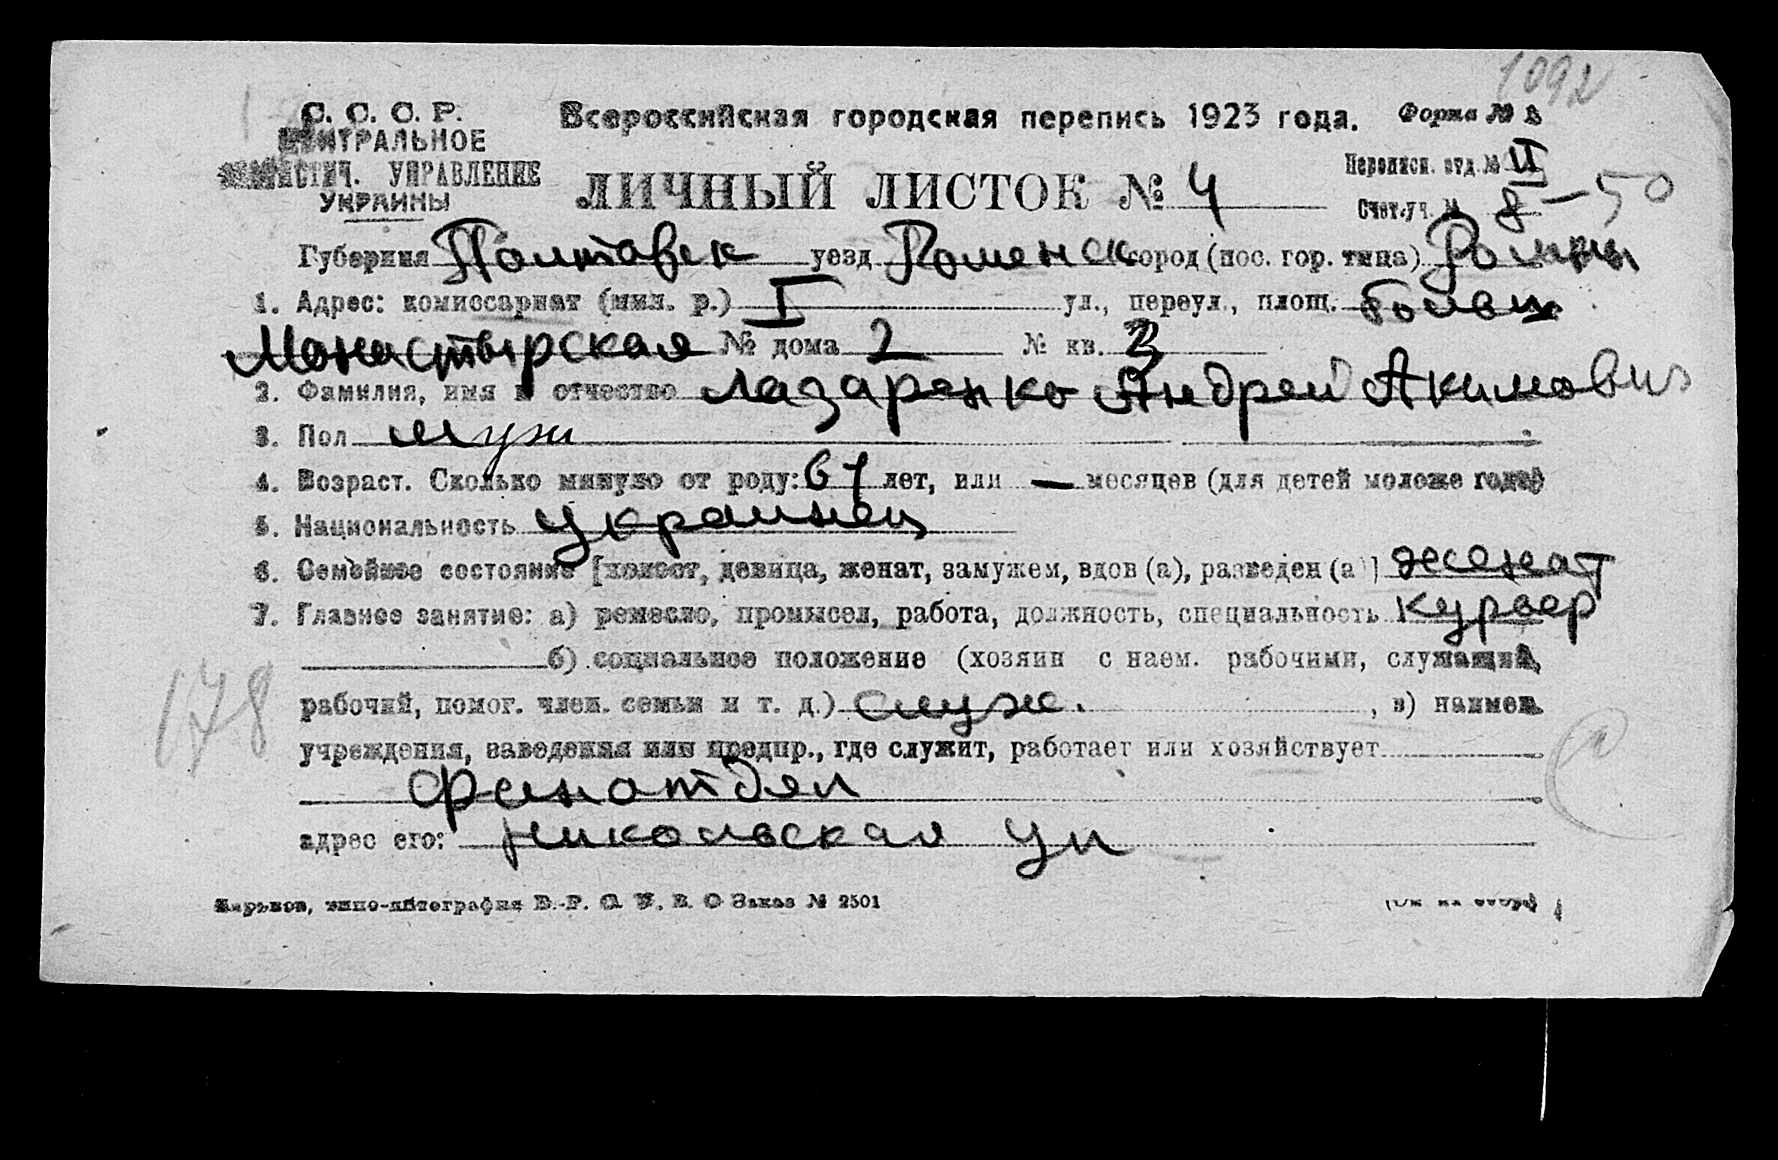 1092
С. С. С. Р.
ЦЕНТРАЛЬНОЕ
СТАТИСТИЧ. УПРАВЛЕНИЕ
УКРАИНЫ
Всероссийская городская перепись 1923 года. Форма № 3
ЛИЧНЫЙ ЛИСТОК № 4
Переписн. отд. № II
Счет. уч. № 8 - 50
Губерния Полтавск уезд Роменск город (пос. гор. типа) Ромны
1. Адрес: комиссариат (мил. р.) I ул., переул., площ.
Монастырская № дома 2 № кв. 3
2. Фамилия, имя и отчество Лазаренко Андрей Акимович
3. Пол муж
4. Возраст. Сколько минуло от роду: 67 лет, или — месяцев (для детей моложе года)
5. Национальность украинец
6. Семейное состояние [холост, девица, женат, замужем, вдов (а), разведен (а)] женат
7. Главное занятие: а) ремесло, промысел, работа, должность, специальность курьер
б) социальное положение (хозяин с наем. рабочими, служащий,
рабочий, помог. член. семьи и т. д.) служ. , в) наимен.
учреждения, заведения или предпр., где служит, работает или хозяйствует
Финотдел
адрес его: Никольская ул
178
Харьков, типо-литография В.-Р. С. У. В. О Заказ № 2501